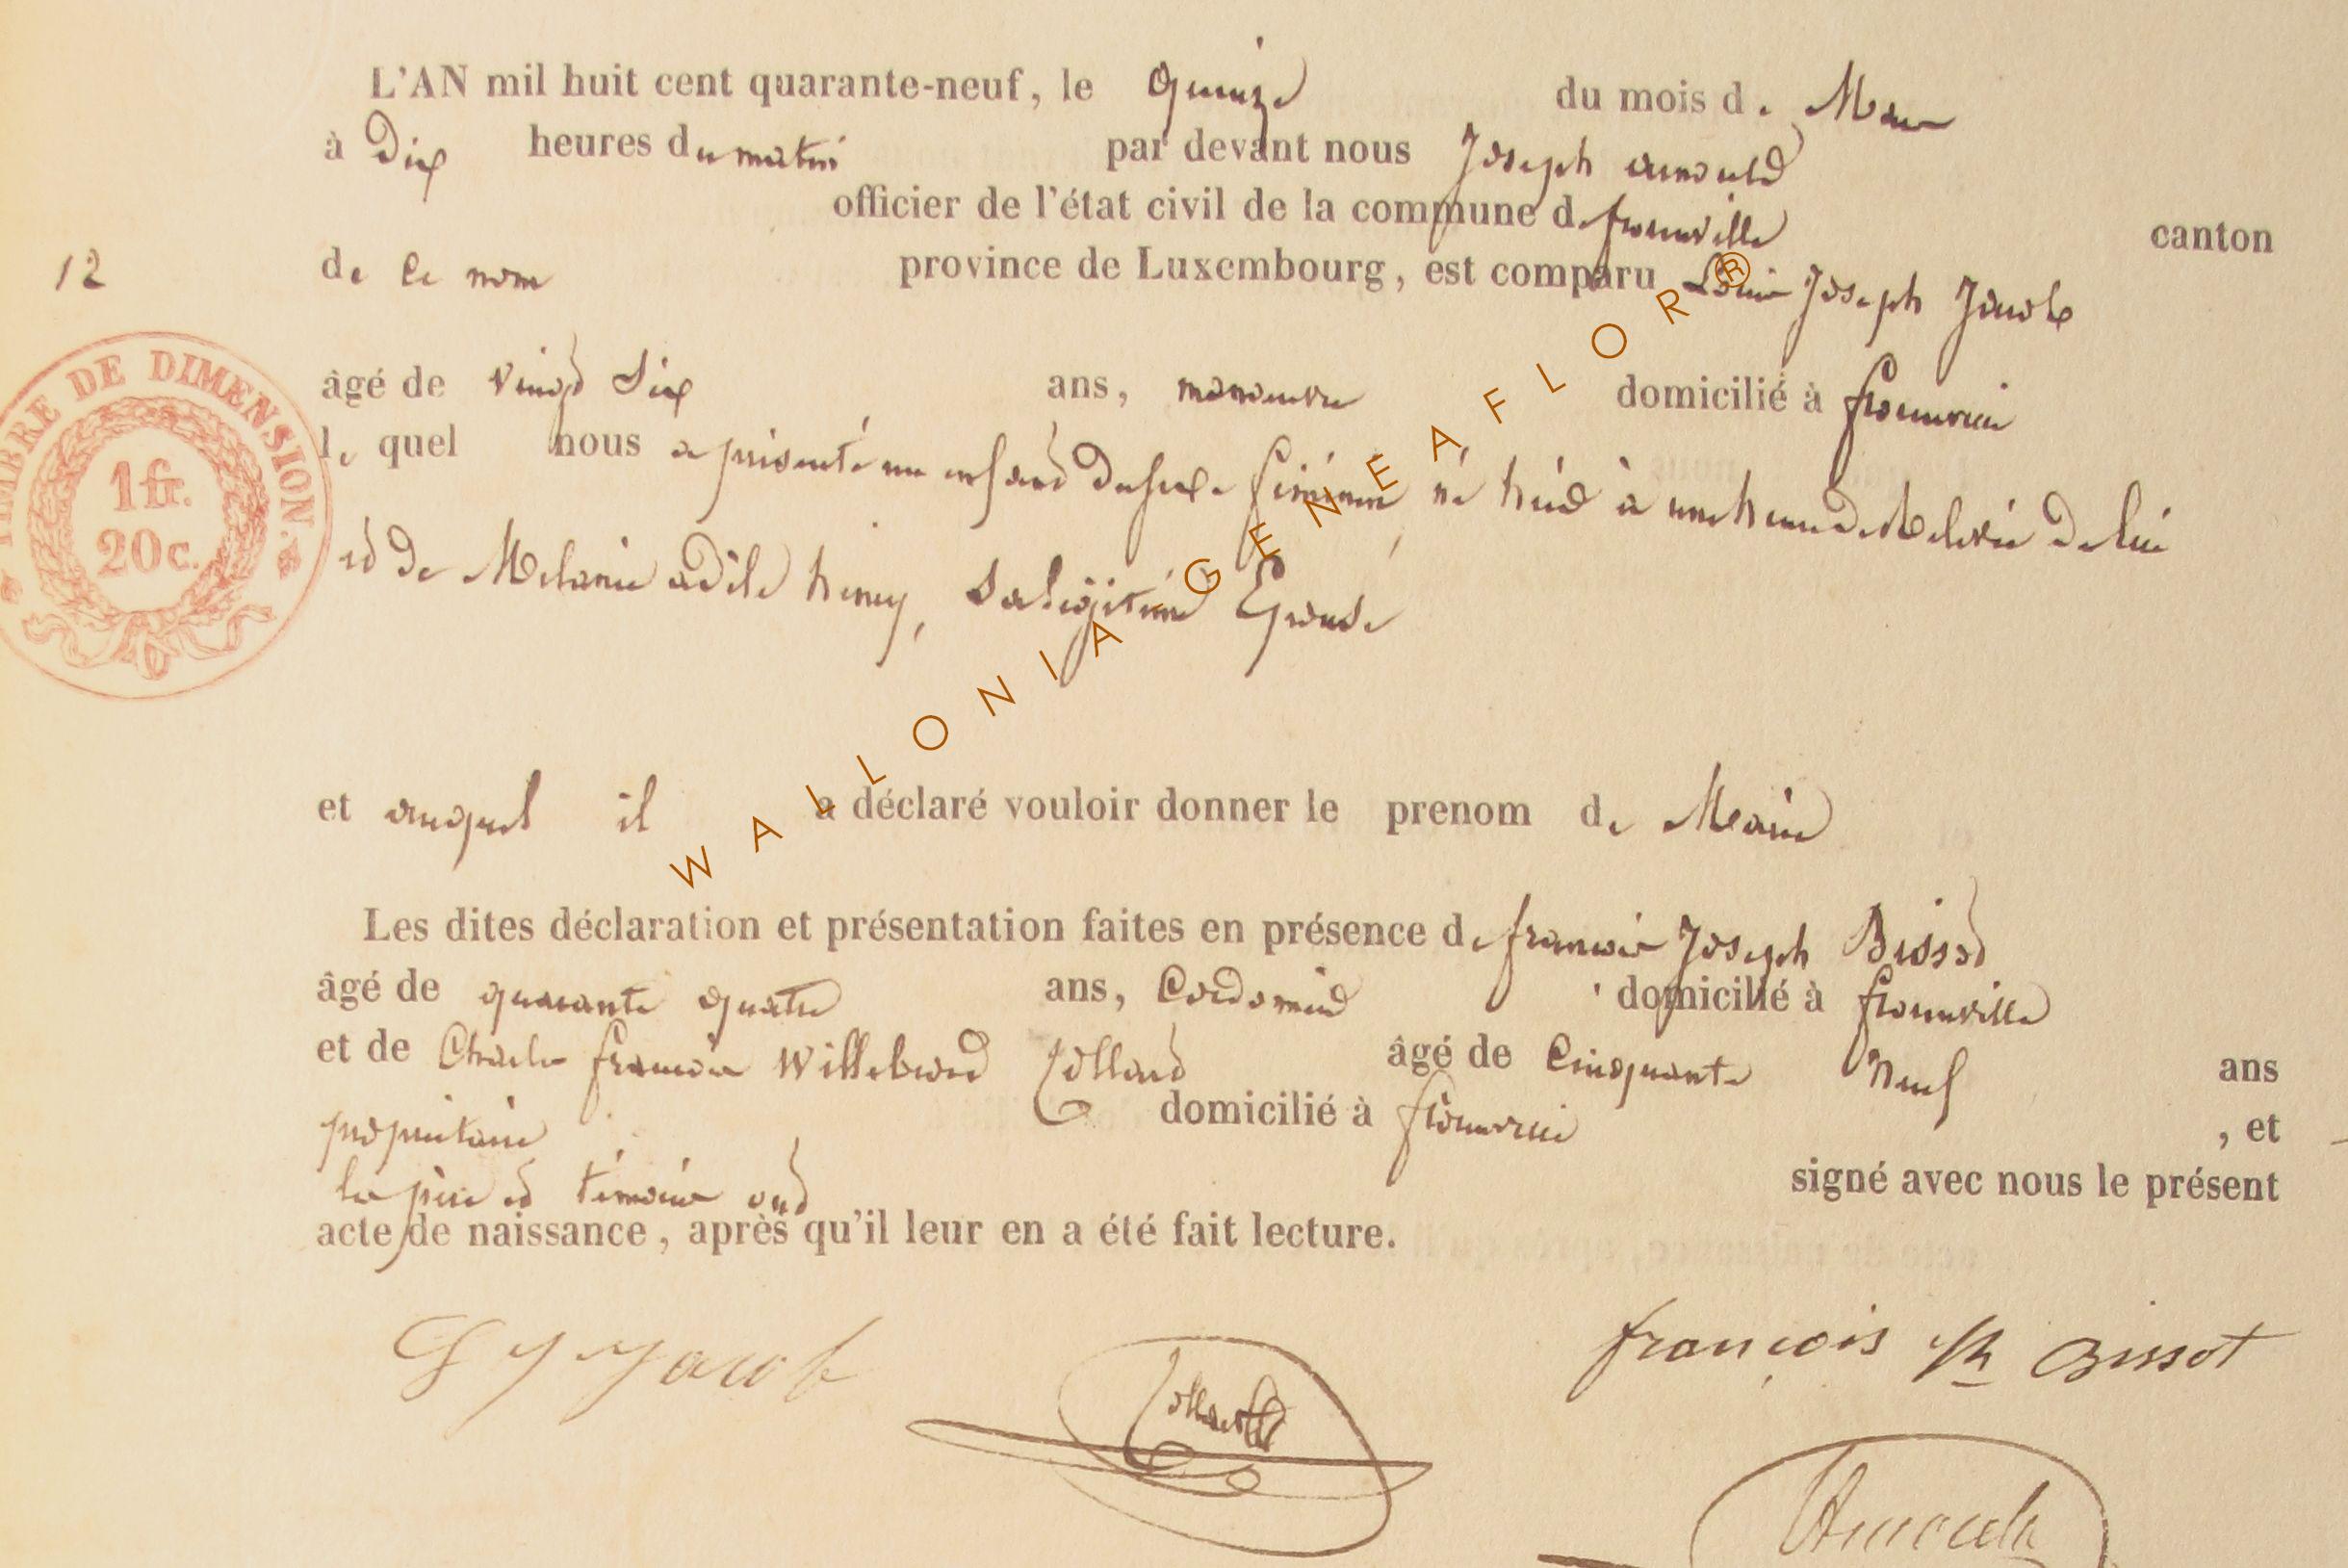 L'AN mil huit cent quarante-neuf, le quinze du mois de Mars
à Dix heures du matin par devant nous Joseph arnould
officier de l'état civil de la commune de florenville canton
12 de ce nom province de Luxembourg, est comparu Louis Joseph Jacob
âgé de vingt Six ans, manoeuvre domicilié à florenville
le quel nous a présenté un enfant du sexe féminin né hier à une heure de relevée de lui
et de Melanie adèle henry, Sa légitime Epouse
et auquel il a déclaré vouloir donner le prenom de Marie
Les dites déclaration et présentation faites en présence de francois Joseph Bissot
âgé de quarante quatre ans, Cordonnier domicilié à florenville
et de Charles francois Willebrord Collard âgé de Cinquante neuf ans
propriétaire domicilié à florenville , et
les père et témoins ont signé avec nous le présent
acte de naissance, après qu'il leur en a été fait lecture.
TIMBRE DE DIMENSION.
1 fr.
20 c.
WALLONIA GENEAFLOR®
Jacob
Collard
françois Jh Bissot
Arnould